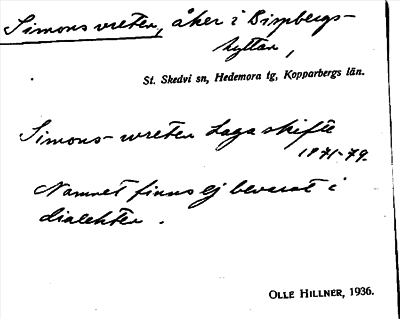 Simons vreten, åker i Bispbergs-
hyttan,
St. Skedvi sn, Hedemora tg, Kopparbergs län.
Simons-wreten Laga skifte
1871-79.
Namnet finns ej bevarat i
dialekten.
OLLE HILLNER, 1936.